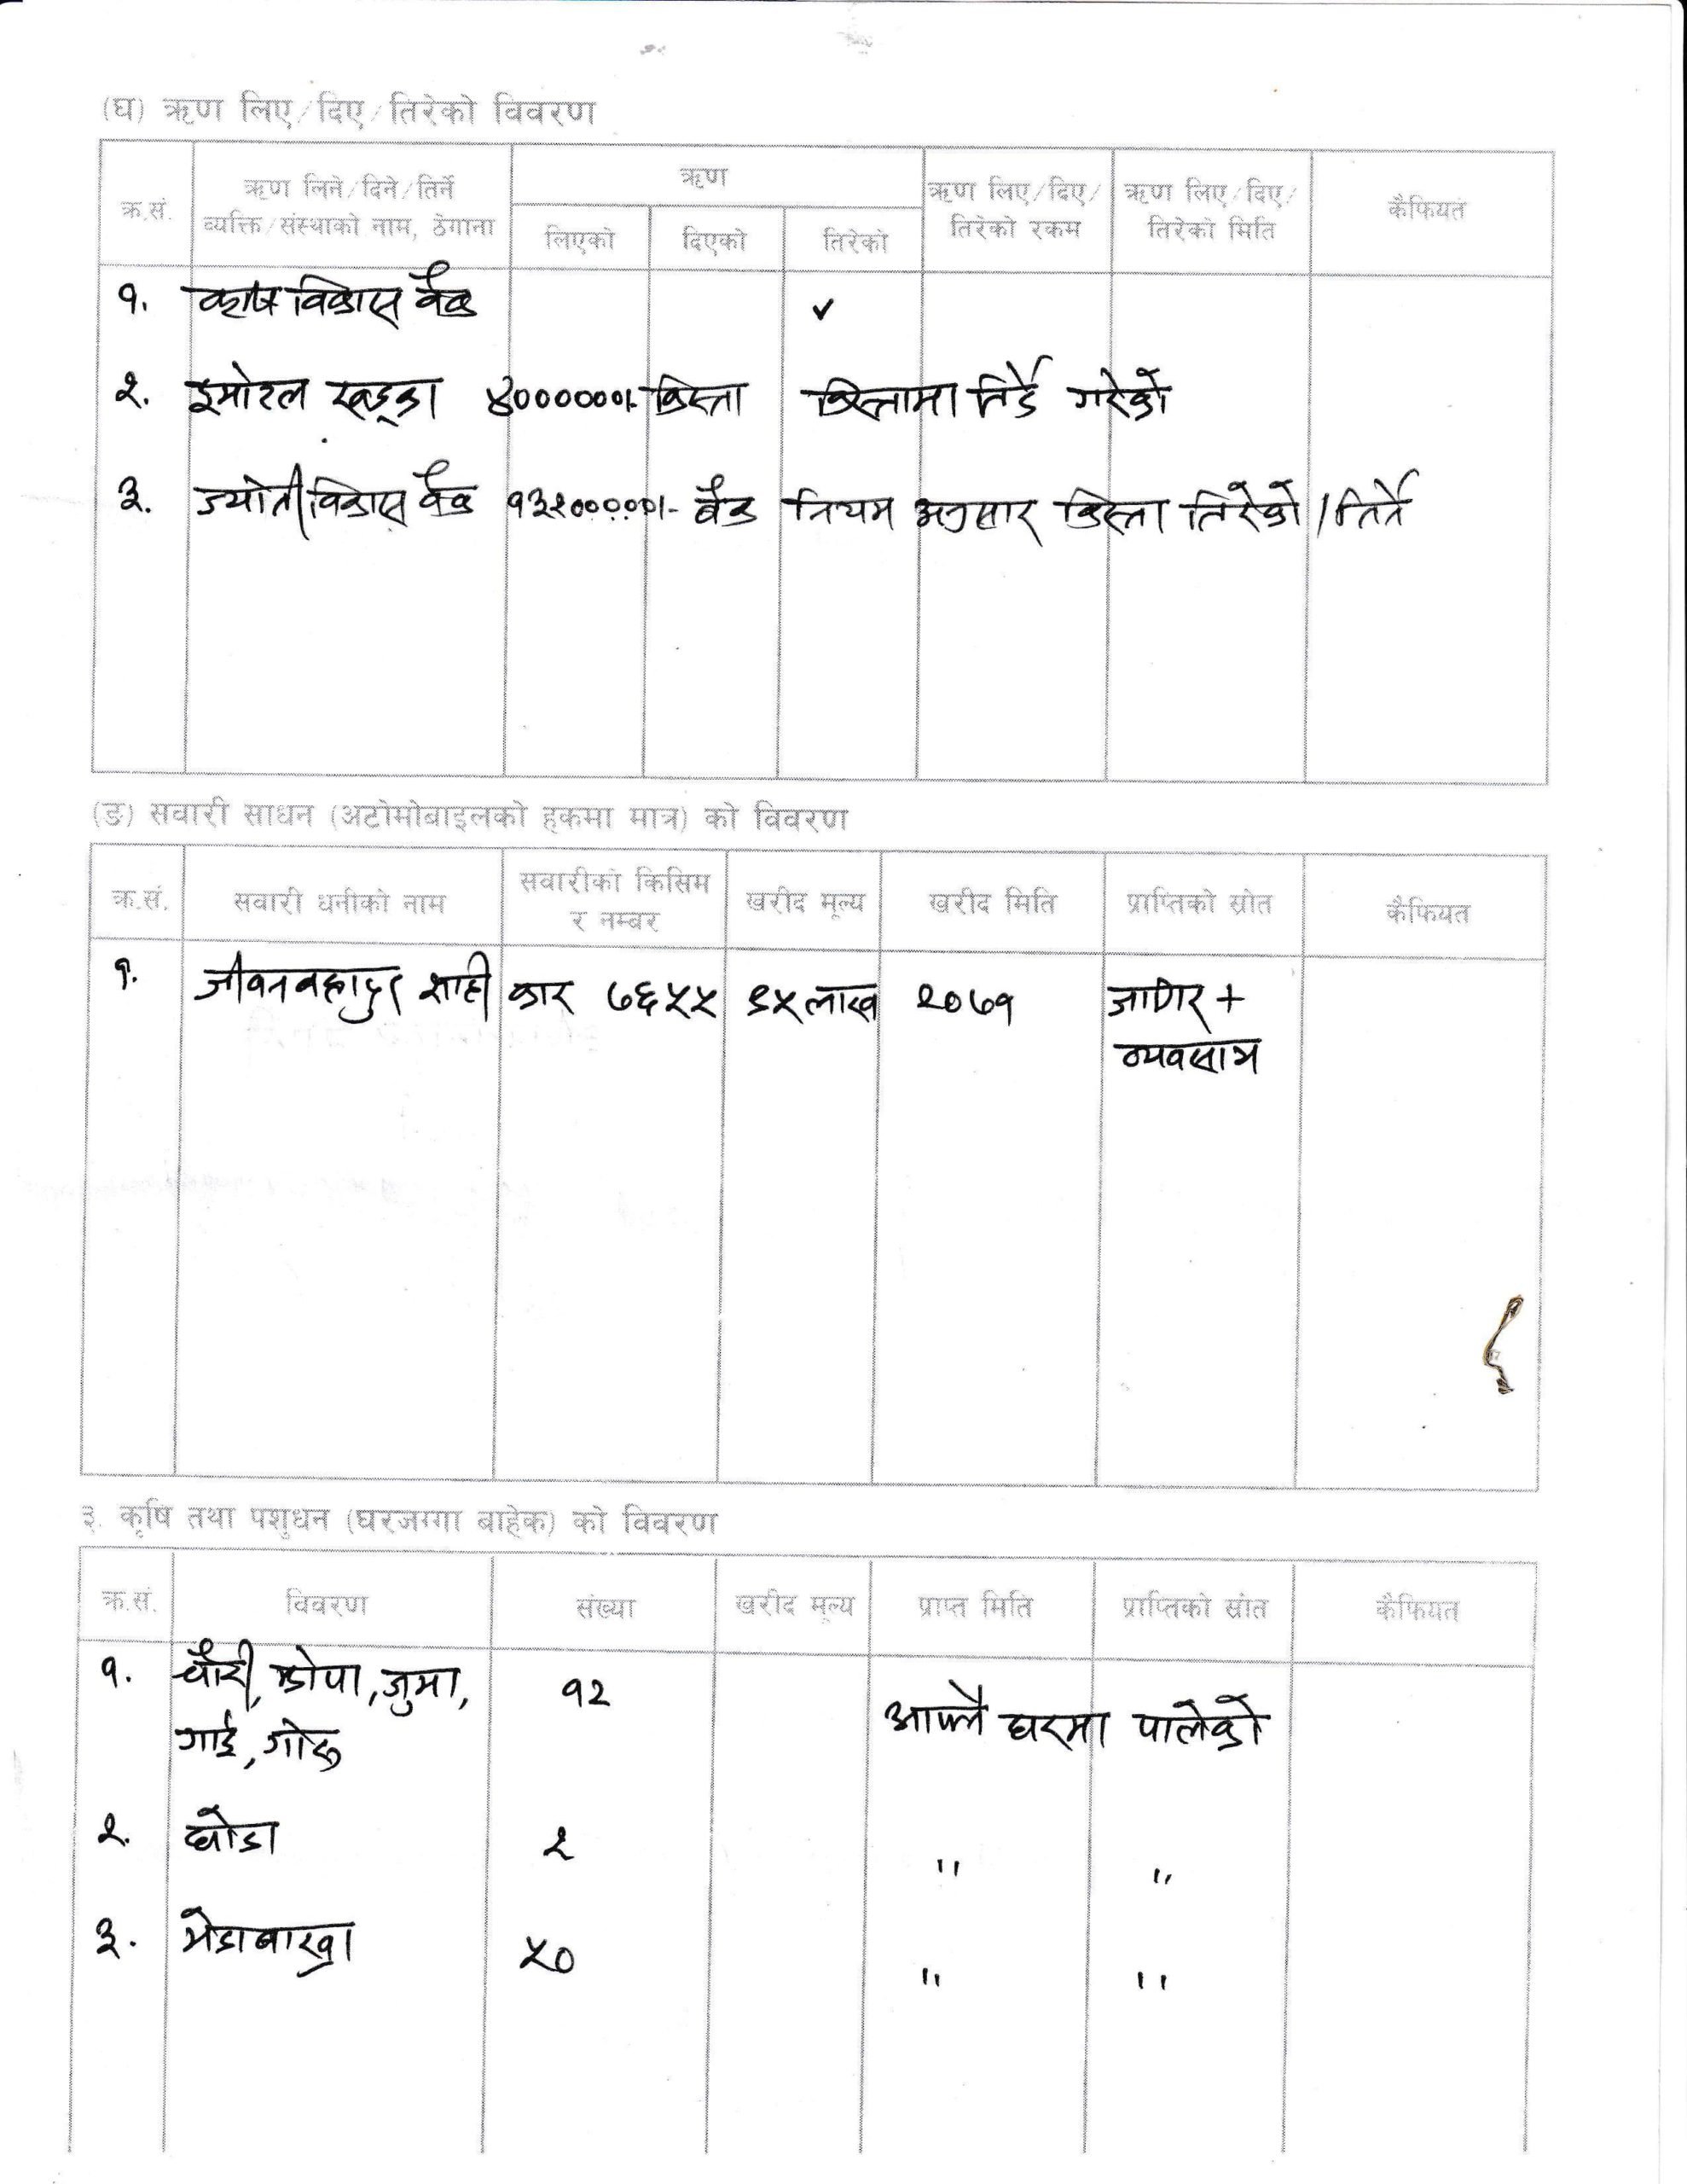 (घ) ऋण लिए/दिए/तिरेको विवरण
क्र.सं. ऋण लिने/दिने/तिर्ने व्यक्ति/संस्थाको नाम, ठेगाना ऋण ऋण लिए/दिए/तिरेको रकम ऋण लिए/दिए/तिरेको मिति कैफियत
लिएको दिएको तिरेको
१. कृषि विकास बैंक ✓
२. इमोरल खड्का ४००००००।- किस्ता किस्तामा तिर्दै गरेको
३. ज्योती विकास बैंक १३२०००००।- बैंक नियम अनुसार किस्ता तिरेको/तिर्ने
(ङ) सवारी साधन (अटोमोबाइलको हकमा मात्र) को विवरण
क्र.सं. सवारी धनीको नाम सवारीको किसिम र नम्बर खरीद मूल्य खरीद मिति प्राप्तिको स्रोत कैफियत
१. जीवन बहादुर शाही कार ७६५५ ६५ लाख २०७१ जागिर +
व्यवसाय
३. कृषि तथा पशुधन (घरजग्गा बाहेक) को विवरण
क्र.सं. विवरण संख्या खरीद मूल्य प्राप्त मिति प्राप्तिको स्रोत कैफियत
१. चौंरी, झोपा, जुमा, १२ आफ्नै घरमा पालेको
गाई, गोरु
२. घोडा २ " "
३. भेडाबाख्रा ५० " "